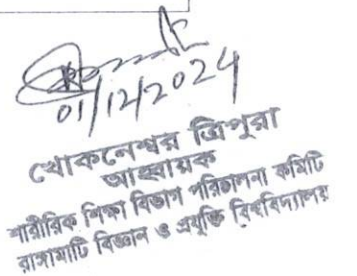 01/12/2024
খোকনেশ্বর ত্রিপুরা
আহ্বায়ক
শারীরিক শিক্ষা বিভাগ পরিচালনা কমিটি
রাঙ্গামাটি বিজ্ঞান ও প্রযুক্তি বিশ্ববিদ্যালয়